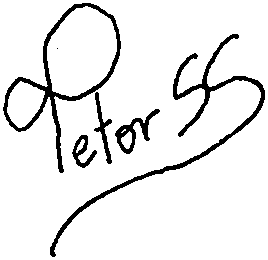 Petor SS